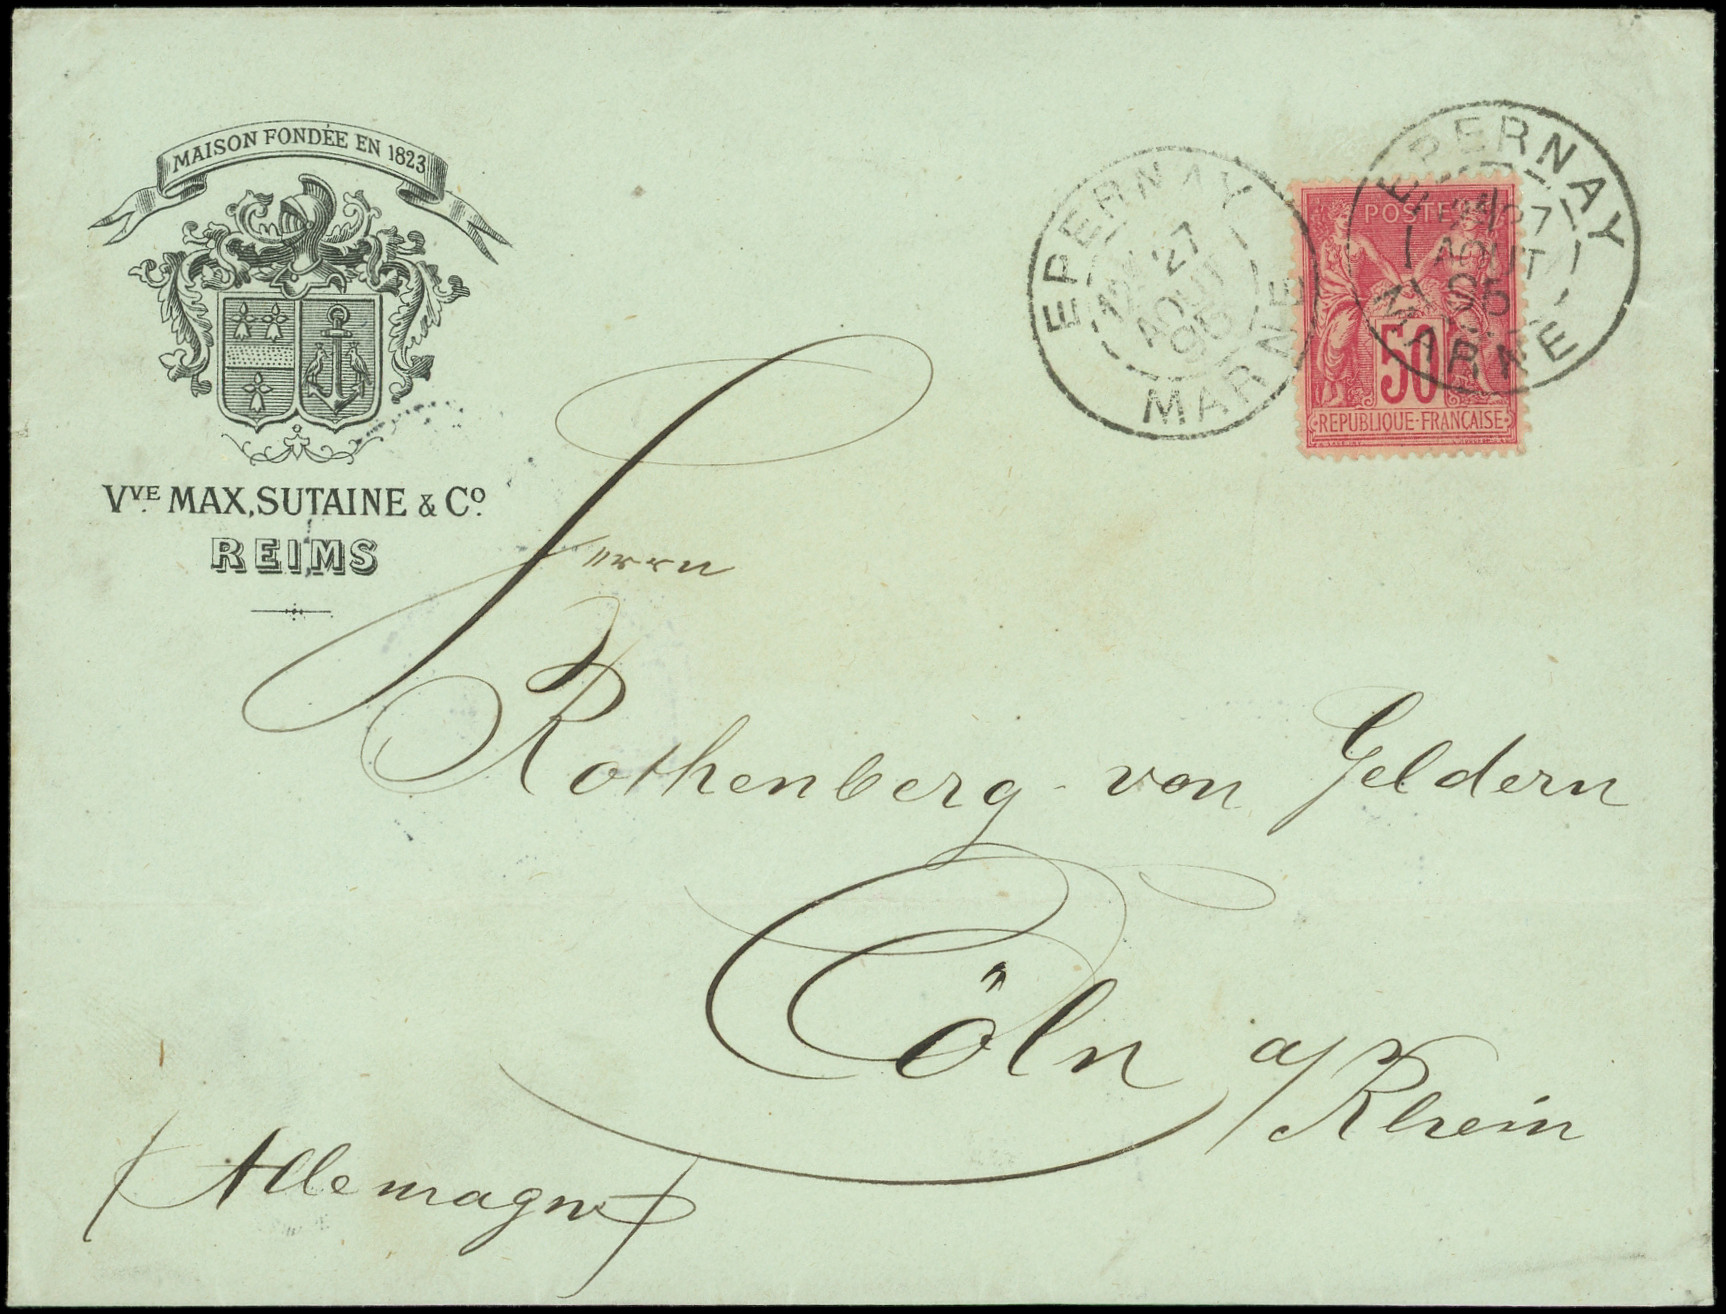 MAISON FONDÉE EN 1823
VVE MAX, SUTAINE & Co.
REIMS
EPERNAY
27
AOUT
95
MARNE
EPERNAY
27
AOUT
95
MARNE
POSTES
50
REPUBLIQUE-FRANÇAISE
Herrn
Rothenberg-von Geldern
Cöln a/Rhein
(Allemagne)